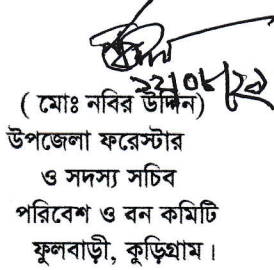 ২২/০৮/২১
( মোঃ নবির উদ্দিন)
উপজেলা ফরেস্টার
ও সদস্য সচিব
পরিবেশ ও বন কমিটি
ফুলবাড়ী, কুড়িগ্রাম।